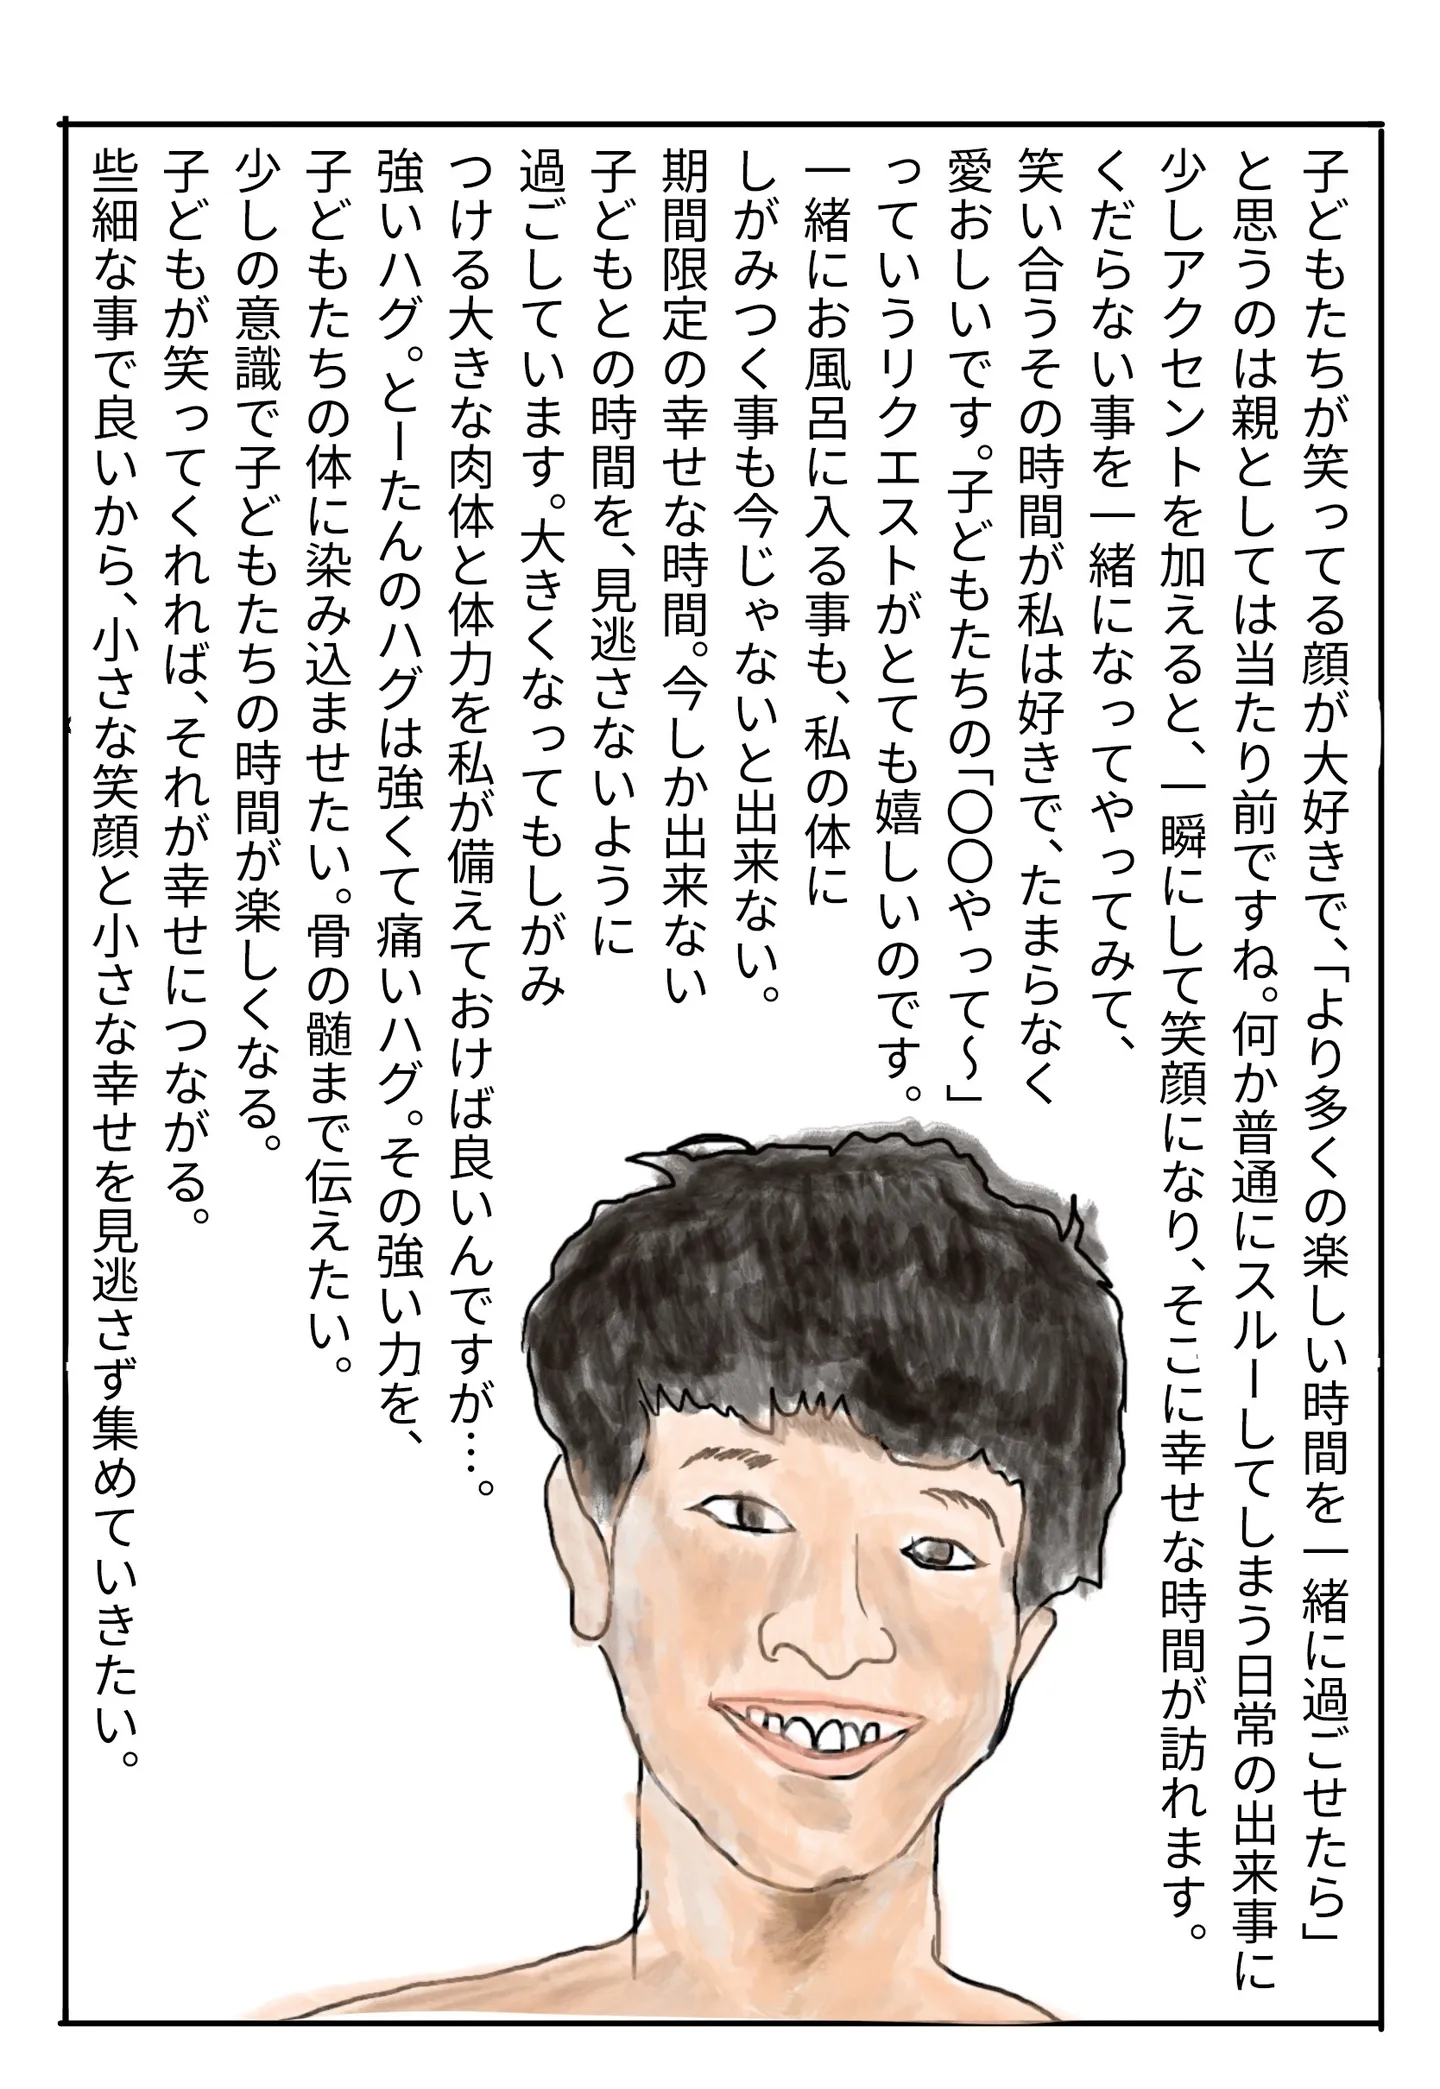 子どもたちが笑ってる顔が大好きで、「より多くの楽しい時間を一緒に過ごせたら」
と思うのは親としては当たり前ですね。何か普通にスルーしてしまう日常の出来事に
少しアクセントを加えると、一瞬にして笑顔になり、そこに幸せな時間が訪れます。
くだらない事を一緒になってやってみて、
笑い合うその時間が私は好きで、たまらなく
愛おしいです。子どもたちの「〇〇やって〜」
っていうリクエストがとても嬉しいのです。
一緒にお風呂に入る事も、私の体に
しがみつく事も今じゃないと出来ない。
期間限定の幸せな時間。今しか出来ない
子どもとの時間を、見逃さないように
過ごしています。大きくなってもしがみ
つける大きな肉体と体力を私が備えておけば良いんですが…。
強いハグ。とーたんのハグは強くて痛いハグ。その強い力を、
子どもたちの体に染み込ませたい。骨の髄まで伝えたい。
少しの意識で子どもたちの時間が楽しくなる。
子どもが笑ってくれれば、それが幸せにつながる。
些細な事で良いから、小さな笑顔と小さな幸せを見逃さず集めていきたい。